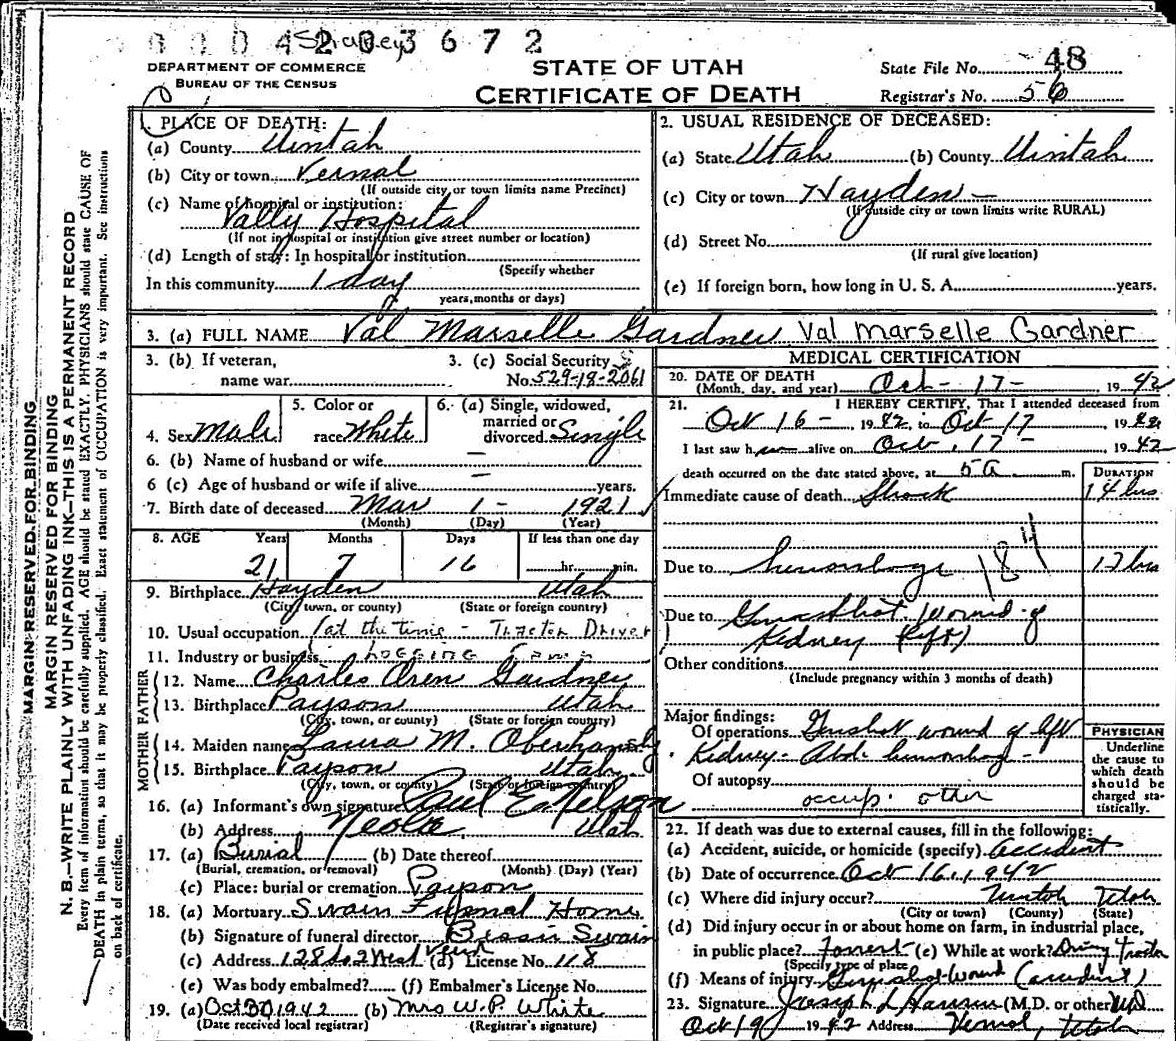 0004203672
DEPARTMENT OF COMMERCE
BUREAU OF THE CENSUS
STATE OF UTAH
CERTIFICATE OF DEATH
State File No. 48
Registrar's No. 56
MARGIN RESERVED FOR BINDING
MARGIN RESERVED FOR BINDING
N. B.—WRITE PLAINLY WITH UNFADING INK—THIS IS A PERMANENT RECORD
Every item of information should be carefully supplied. AGE should be stated EXACTLY. PHYSICIANS should state CAUSE OF
DEATH in plain terms, so that it may be properly classified. Exact statement of OCCUPATION is very important. See instructions
on back of certificate.
1. PLACE OF DEATH:
(a) County Uintah
(b) City or town Vernal
(If outside city or town limits name Precinct)
(c) Name of hospital or institution:
Vally Hospital
(If not in hospital or institution give street number or location)
(d) Length of stay: In hospital or institution
(Specify whether
In this community 1 day
years, months or days)
2. USUAL RESIDENCE OF DECEASED:
(a) State Utah (b) County Uintah
(c) City or town Hayden —
(If outside city or town limits write RURAL)
(d) Street No.
(If rural give location)
(e) If foreign born, how long in U. S. A. years.
3. (a) FULL NAME Val Marselle Gardner Val Marselle Gardner
3. (b) If veteran,
name war
3. (c) Social Security
No. 529-18-2061
4. Sex Male
5. Color or
race White
6. (a) Single, widowed,
married or
divorced Single
6. (b) Name of husband or wife —
6 (c) Age of husband or wife if alive — years.
7. Birth date of deceased Mar 1 - 1921
(Month) (Day) (Year)
8. AGE Years Months Days If less than one day
21 7 16 hr. min.
9. Birthplace Hayden Utah
(City, town, or county) (State or foreign country)
10. Usual occupation (at the time - Tractor Driver
11. Industry or business Logging
FATHER
12. Name Charles Oren Gardner
13. Birthplace Payson Utah
(City, town, or county) (State or foreign country)
MOTHER
14. Maiden name Laura M. Oberhansly
15. Birthplace Payson Utah
(City, town, or county) (State or foreign country)
16. (a) Informant's own signature E. Nelson
(b) Address Neola Utah
17. (a) Burial (b) Date thereof
(Burial, cremation, or removal) (Month) (Day) (Year)
(c) Place: burial or cremation Payson
18. (a) Mortuary Swain Funeral Home
(b) Signature of funeral director Bessie Swain
(c) Address 128 So 2 West (d) License No. 118
(e) Was body embalmed? (f) Embalmer's License No.
19. (a) Oct 30 1942 (b) Mrs W. P. White
(Date received local registrar) (Registrar's signature)
MEDICAL CERTIFICATION
20. DATE OF DEATH
(Month, day, and year) Oct - 17 - 1942
21. I HEREBY CERTIFY, That I attended deceased from
Oct 16 - 1942 to Oct 17 1942
I last saw h alive on Oct. 17 - 1942
death occurred on the date stated above, at 5 a m.
DURATION
Immediate cause of death Shock 14 hrs
Due to hemorrhage 17 hrs
184
Due to Gunshot wound of
Kidney (left)
Other conditions
(Include pregnancy within 3 months of death)
Major findings:
Of operations Gunshot wound of left
Kidney - Abd. hemorrhage -
Of autopsy
occup. other
PHYSICIAN
Underline
the cause to
which death
should be
charged sta-
tistically.
22. If death was due to external causes, fill in the following:
(a) Accident, suicide, or homicide (specify) accident
(b) Date of occurrence Oct 16, 1942
(c) Where did injury occur? Uintah Utah
(City or town) (County) (State)
(d) Did injury occur in or about home on farm, in industrial place,
in public place? Forrest (e) While at work? Driving Tractor
(Specify type of place)
(f) Means of injury Gunshot Wound (accident)
23. Signature Joseph L Hansen (M.D. or other) MD
Oct 19 1942 Address Vernal, Utah